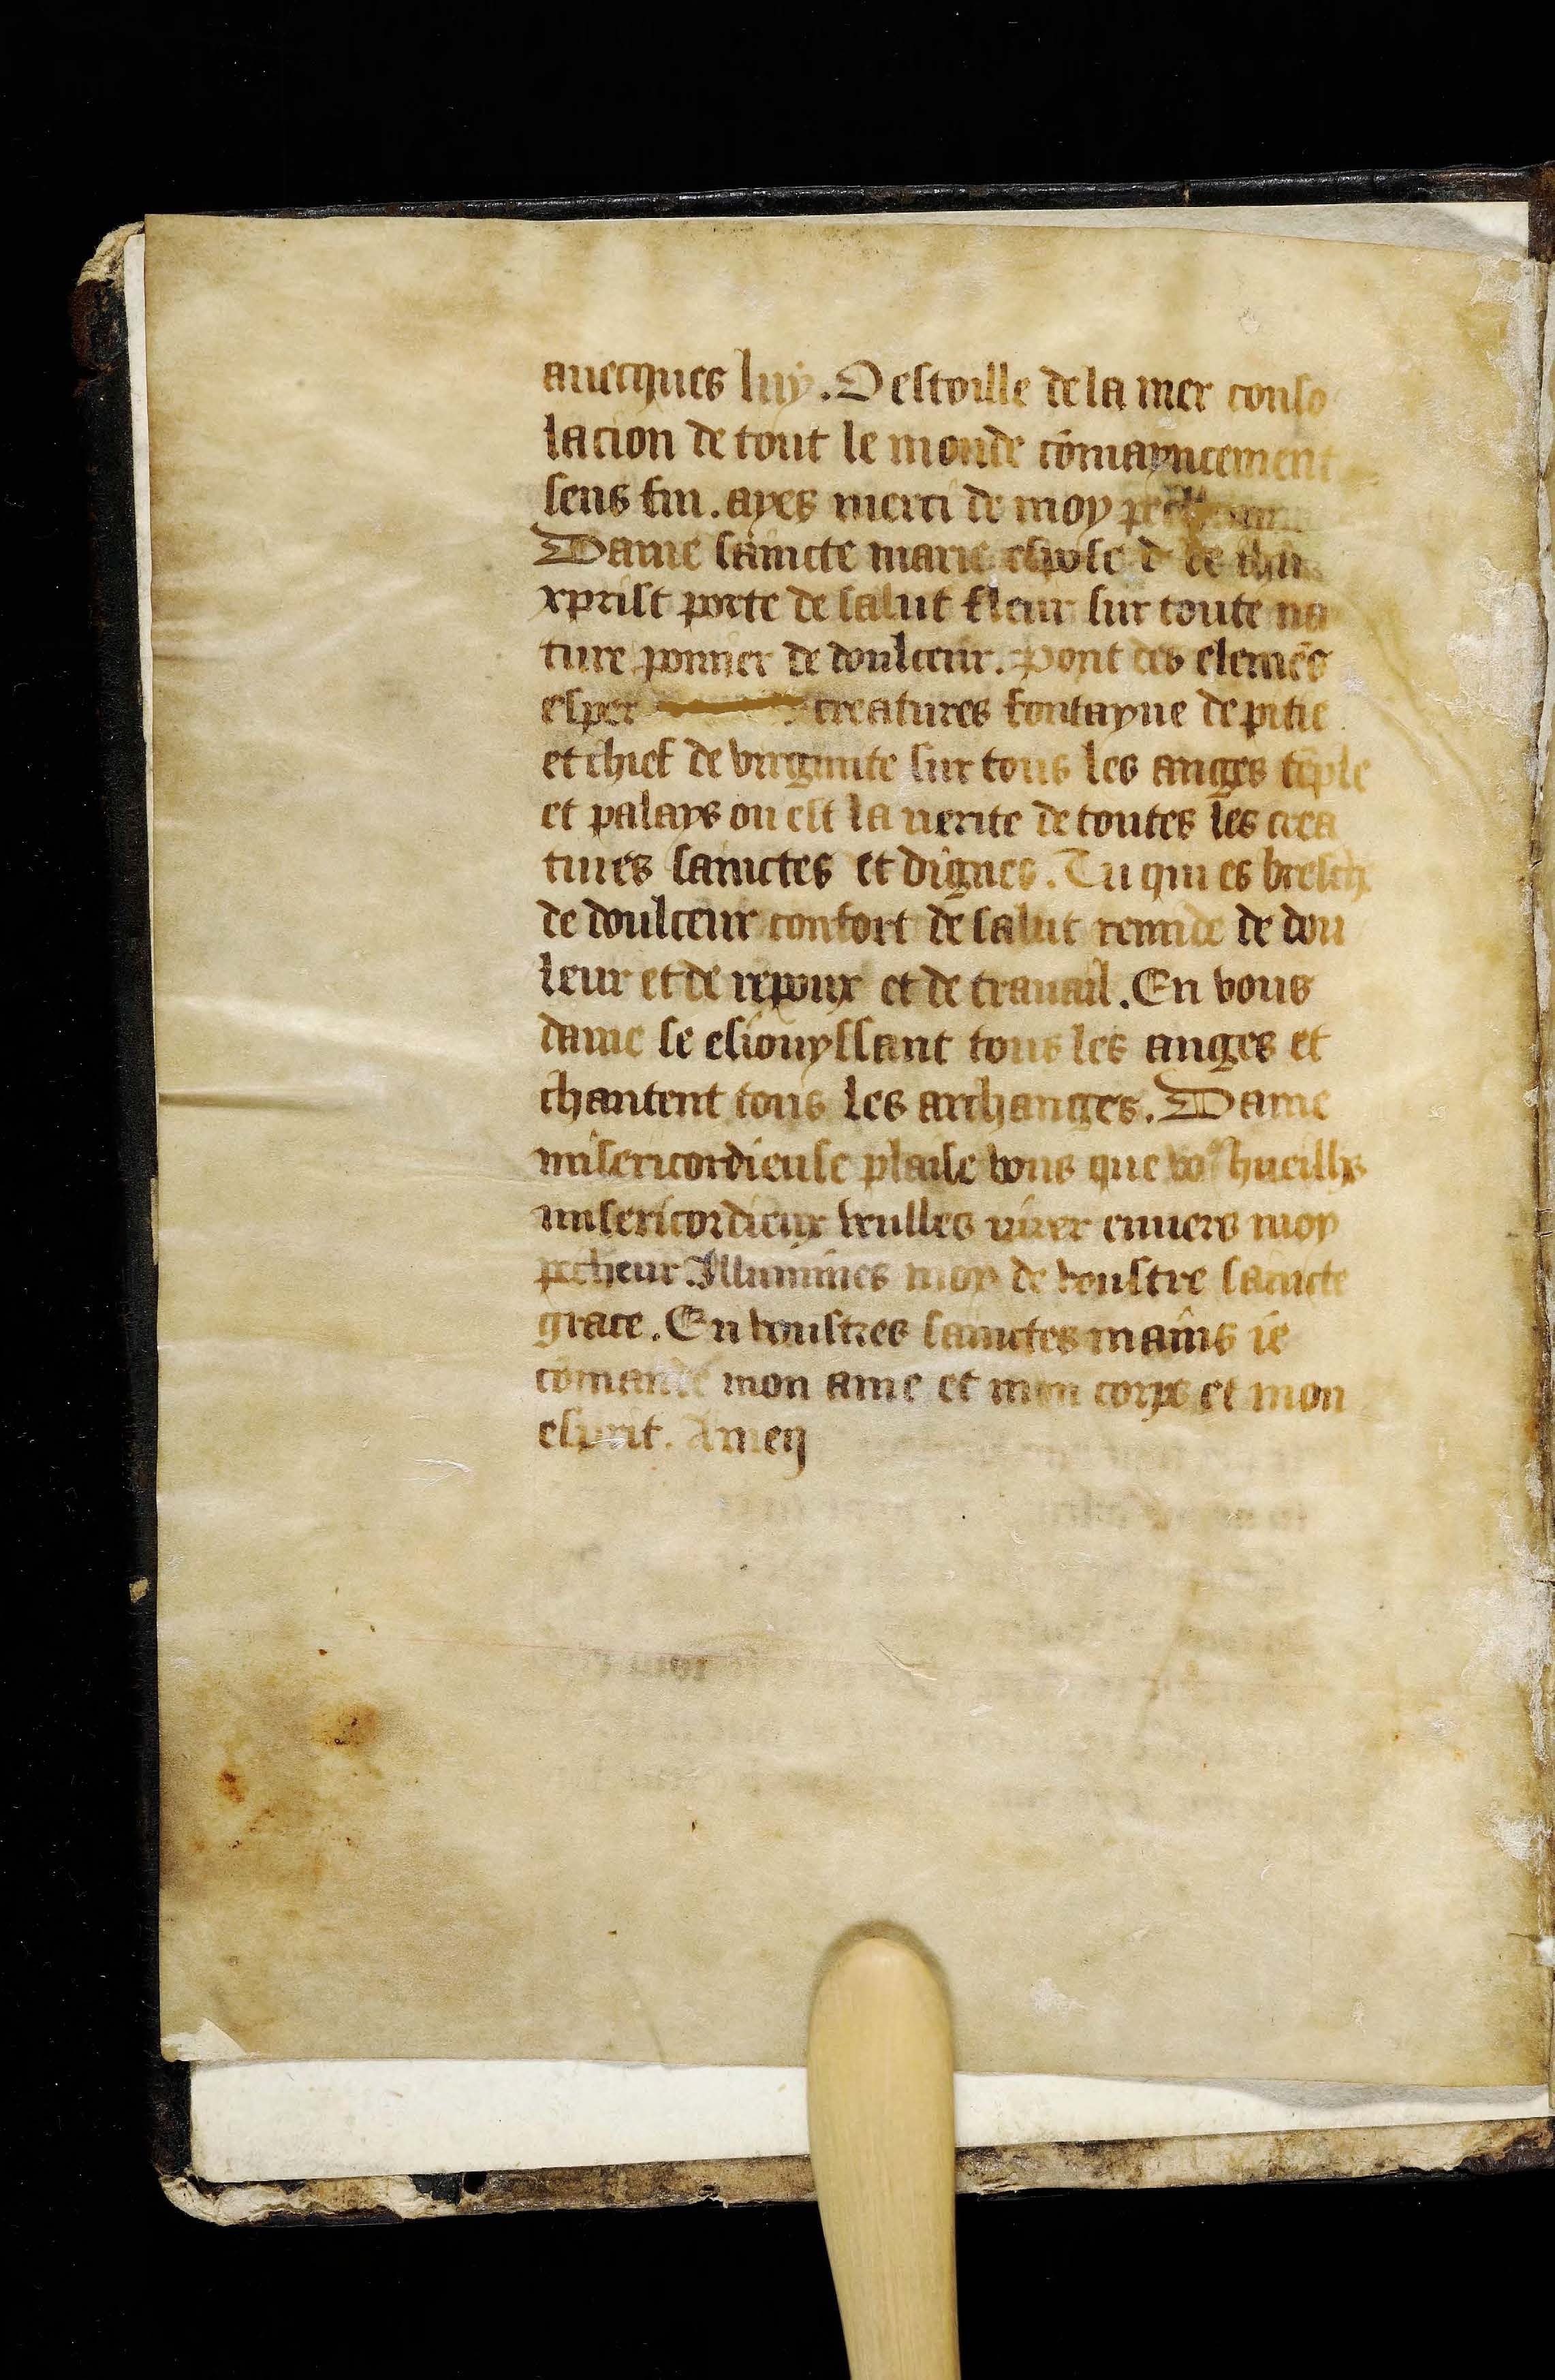 auecques luy. O estoille de la mer conso
lacion de tout le monde cōmayncement
sens fin. ayes merci de moy
Dame saincte marie espose de
xprist porte de salut fleur sur toute na
ture pomier de doulceur. Pont des elemēs
esper creatures fontayne de pitie.
et chief de virginite sur tous les anges tēple
et palays ou est la uerite de toutes les crea
tures sainctes et dignes. Tu qui es bresch
de doulceur confort de salut remide de dou
leur et de repoux et de trauail. En vous
dame se esiouyssant tous les anges et
chantent tous les archanges. Dame
misericordieuse plaise vous que
misericordieux vrulles uirer enuers moy
pecheur Illumines moy de voustre saincte
grace. En voustres sainctes mains ie
cōmande mon ame et mon corps et mon
esprit. Amen